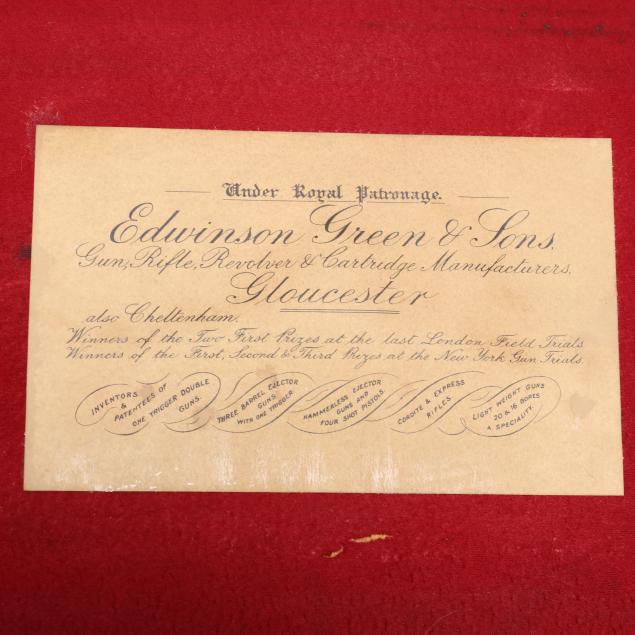 Under Royal Patronage.
Edwinson Green & Sons.
Gun, Rifle, Revolver & Cartridge Manufacturers.
Gloucester
also Cheltenham.
Winners of the Two First Prizes at the last London Field Trials
Winners of the First, Second & Third Prizes at the New York Gun Trials.
INVENTORS
&
PATENTEES OF
ONE TRIGGER DOUBLE
GUNS.
THREE BARREL EJECTOR
GUNS
WITH ONE TRIGGER.
HAMMERLESS EJECTOR
GUNS AND
FOUR SHOT PISTOLS.
CORDITE & EXPRESS
RIFLES.
LIGHT WEIGHT GUNS
20 & 16 BORES
A SPECIALITY.